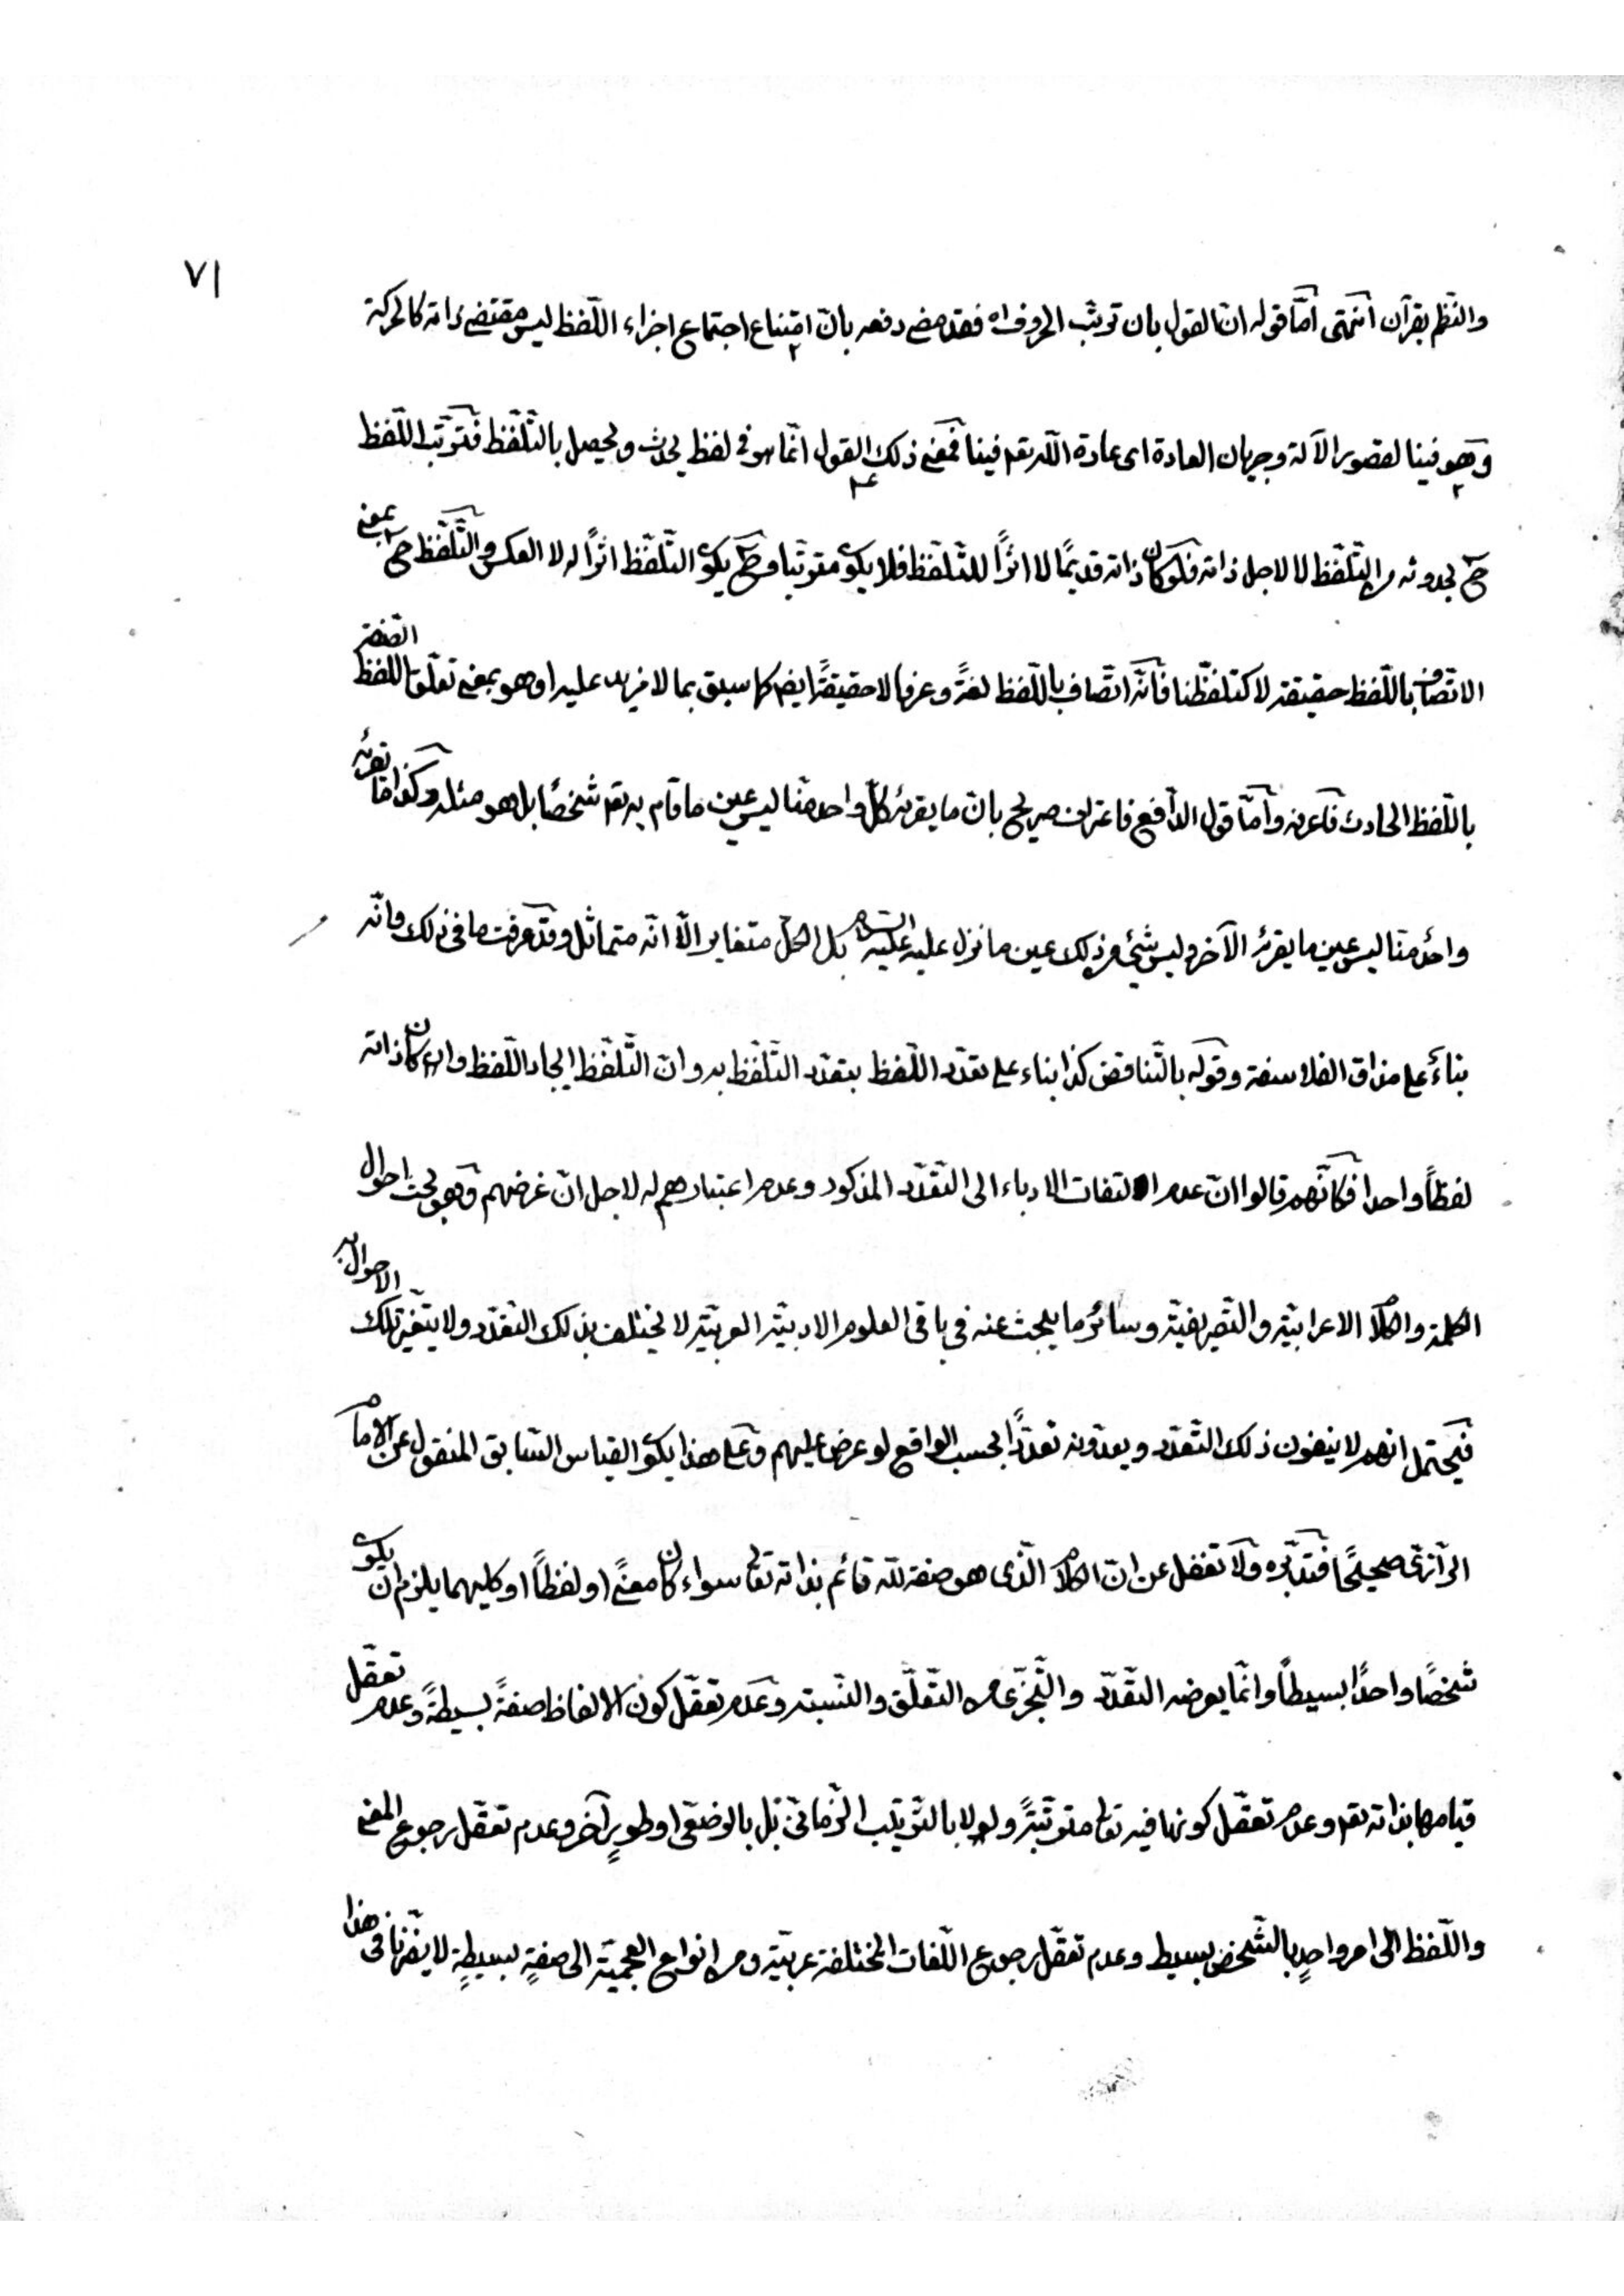 ٧١
والنّظم بقرآن انتهى امّا قوله انّ القول بان ترتّب الحروف اه فقد مضى دفعه بانّ امتناع اجتماع اجزاء اللّفظ ليس مقتضى ذاته كالحركة
وهو فينا لقصور الآلة وجريان العادة اى عادة اللّه تعم فينا فمعنى ذلك القول انّما هو فى لفظ يحدث ويحصل بالتّلفّظ فترتّب اللّفظ
ح بحدوثه من التّلفّظ لا لاجل ذاته فلو كان ذاته قديمًا لا اثرًا للتّلفّظ فلا يكون مترتّبا وح يكون التّلفّظ اثرًا له لا العكس والتّلفّظ ح بمعنى
الاتّصاف باللّفظ حقيقة لا كتلفّظنا فانّه اتّصاف باللّفظ لغةً وعرفا لا حقيقةً ايضا كما سبق بما لا مزيد عليه او هو بمعنى تعلّق اللّفظ الصّفة
باللّفظ الحادث فاعرفه وامّا قول الدّافع فاعتراف صريح بانّ ما يقرئه كلّ واحد منّا ليس عين ما قام به تعم شخصًا بل هو مثله وكذا ما يقرئه
واحد منّا ليس عين ما يقرئه الآخر وليس شئ من ذلك عين ما نزل عليه عليه السّلام بل الكلّ متغاير الّا انّه متماثل وقد عرفت ما فى ذلك وانّه
بناءً على مذاق الفلاسفة وقوله بالتّناقض كذا بناء على تعدّد اللّفظ بتعدّد التّلفّظ به وانّ التّلفّظ ايجاد اللّفظ وان كان ذاته
لفظاً واحدا فكانّهم قالوا انّ عدم التفات الادباء الى التّعدّد المذكور وعدم اعتبارهم له لاجل انّ غرضهم وهو بحث احوال
الكلمة والكلام الاعرابيّة والتّصريفيّة وسائر ما يبحث عنه فى باقى العلوم الادبيّة العربيّة لا يختلف بذلك التّعدّد ولا يتغيّر تلك الاحوال به
فيحتمل انهم لا ينفون ذلك التّعدّد ويعدّونه تعدّدًا بحسب الواقع لو عرض عليهم وعلى هذا يكون القياس السّابق المنقول عن الامام
الرّازىّ صحيحًا فتدبّره ولا تغفل عن انّ الكلام الّذى هو صفة للّه قائم بذاته تعالى سواء كان معنًى او لفظاً او كليهما يلزم ان يكون
شخصًا واحدًا بسيطاً وانّما يعرضه التّعدّد والتّجزّى من التّعلّق والنّسبة وعدم تعقّل كون الالفاظ صفةً بسيطةً وعدم تعقّل
قيامها بذاته تعم وعدم تعقّل كونها فيه تعالى مترتّبةً ولو لا بالتّرتيب الزّمانىّ بل بالوضعىّ او طورٍ آخر وعدم تعقّل رجوع المعنى
واللّفظ الى امر واحدٍ بالشّخص بسيط وعدم تعقّل رجوع اللّغات المختلفة عربيّة ومن انواع العجميّة الى صفةٍ بسيطةٍ لا يضرّنا فى هذا